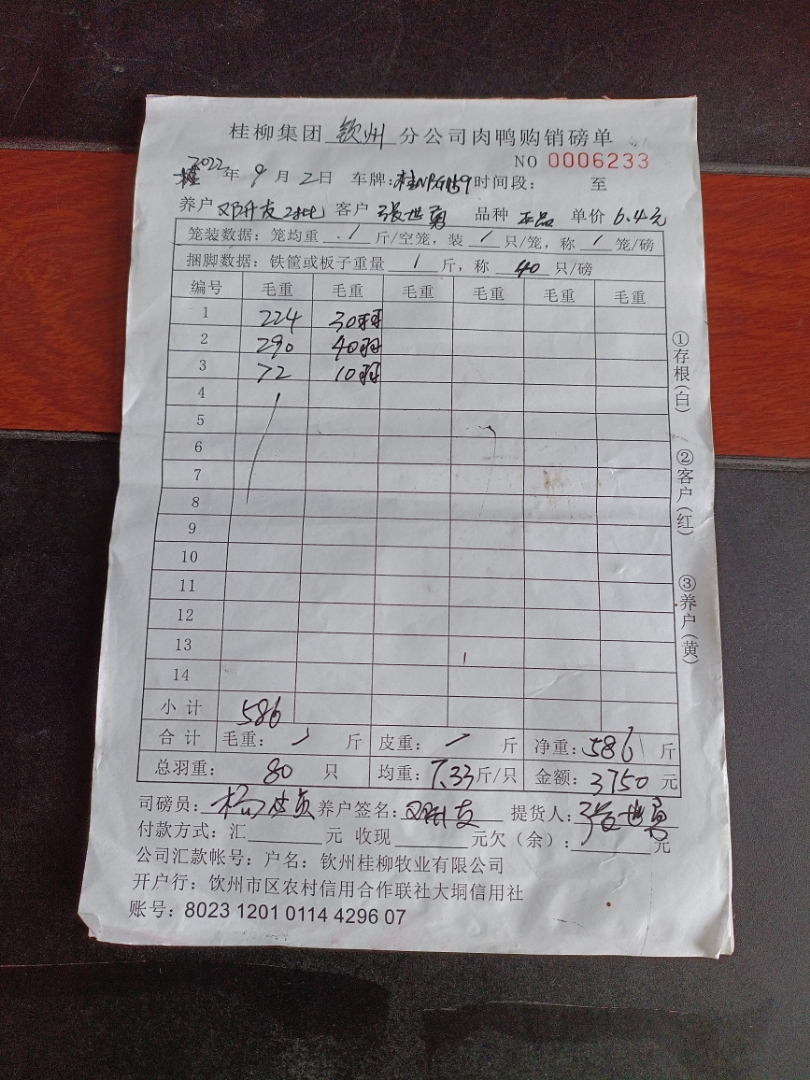 桂柳集团 钦州 分公司肉鸭购销磅单
NO 0006233
2022年 9 月 2 日 车牌: 时间段: 至
养户 邓开友 客户 张世勇 品种 正品 单价 6.4元
笼装数据: 笼均重 / 斤/空笼, 装 / 只/笼, 称 / 笼/磅
捆脚数据: 铁筐或板子重量 / 斤, 称 40 只/磅
编号 毛重 毛重 毛重 毛重 毛重 毛重
1 224 30羽
2 290 40羽
3 72 10羽
4
5
6
7
8
9
10
11
12
13
14
小计 586
合计 毛重: / 斤 皮重: / 斤 净重: 586 斤
总羽重: 80 只 均重: 7.33斤/只 金额: 3750 元
司磅员: 养户签名: 邓开友 提货人: 张世勇
付款方式: 汇 元 收现 元欠(余): 元
公司汇款帐号: 户名: 钦州桂柳牧业有限公司
开户行: 钦州市区农村信用合作联社大垌信用社
账号: 8023 1201 0114 4296 07
①存根(白)
②客户(红)
③养户(黄)